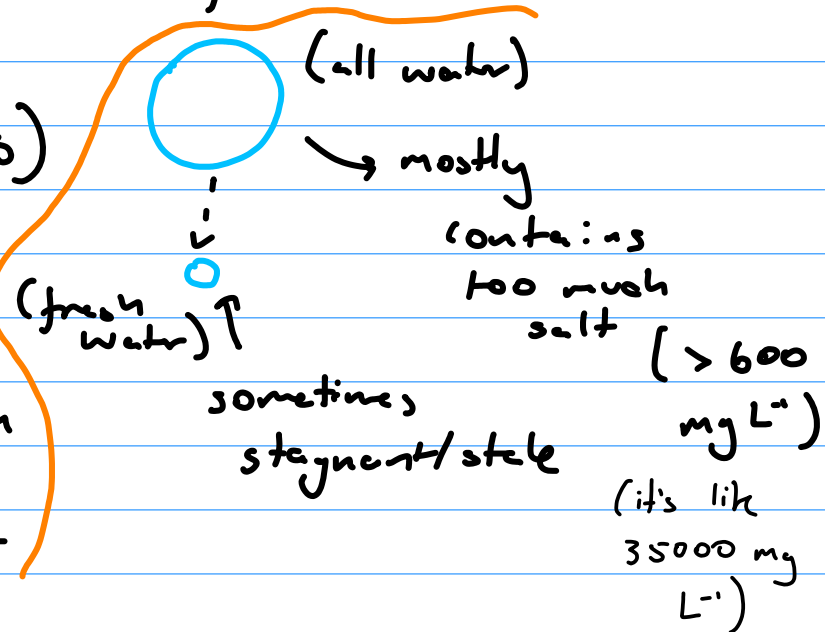 (all water)
→ mostly
contains
too much
salt
(> 600
mg L⁻¹)
(it's like
35000 mg
L⁻¹)
(fresh
water) ↑
sometimes
stagnant/stale